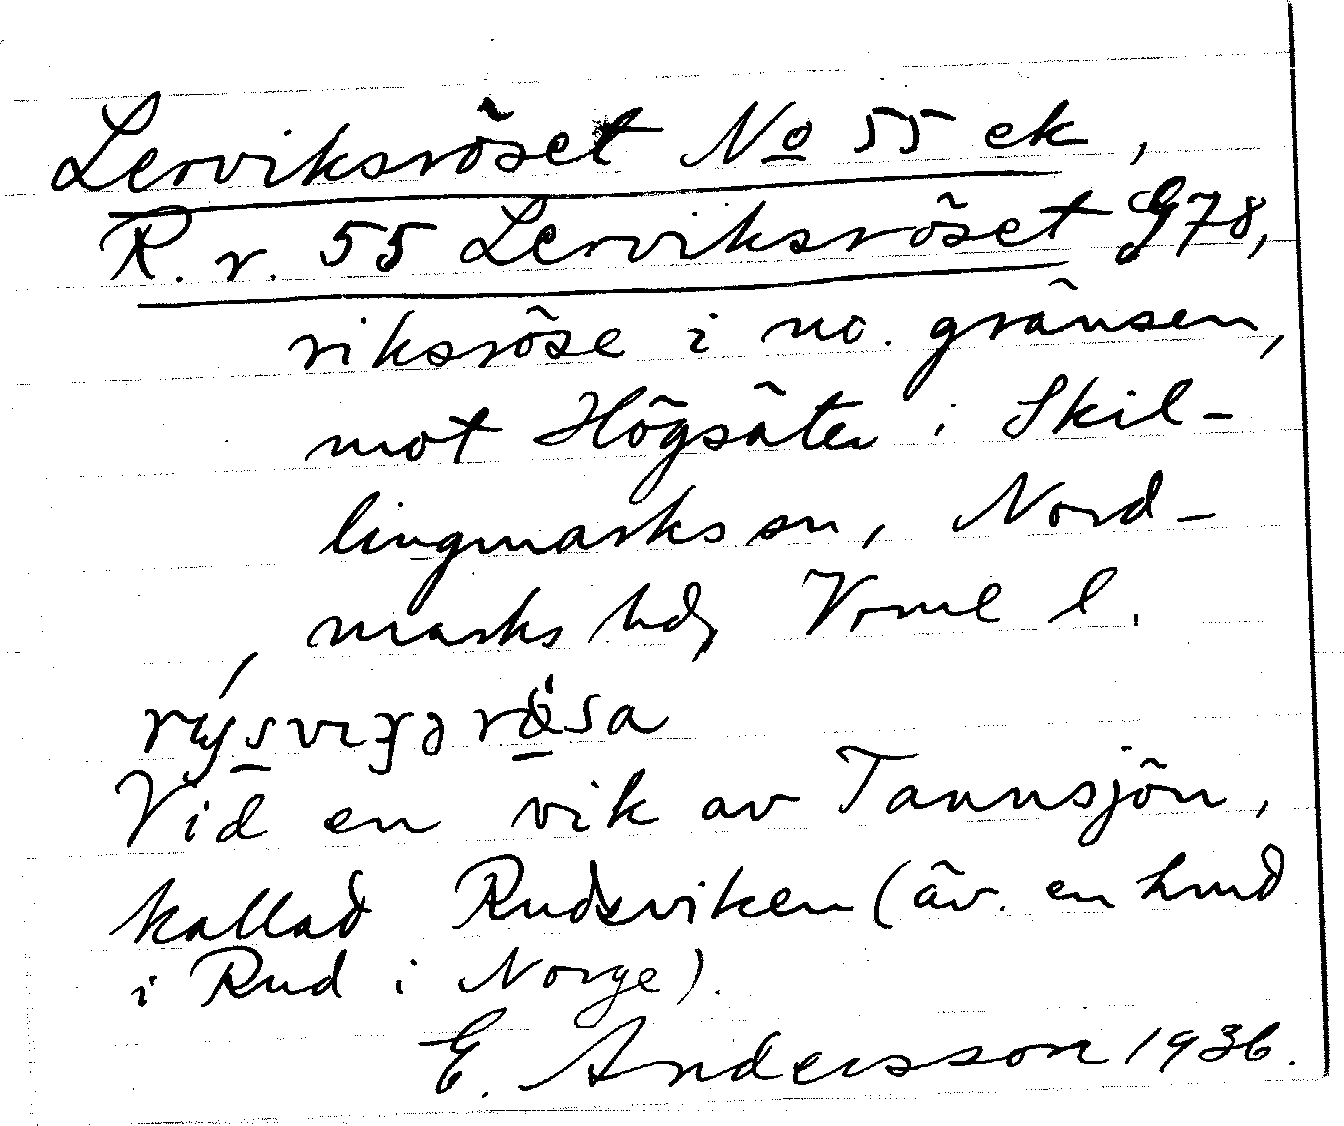 Lerviksröset No 55 ek,
R. r. 55 Lerviksröset G78,
riksröse i no. gränsen,
mot Högsäter i Skil-
lingmarks sn, Nord-
marks hd, Vrml l.
Vid en vik av Tannsjön,
kallad Rudsviken (äv. en hmd
i Rud i Norge).
E. Andersson 1936.